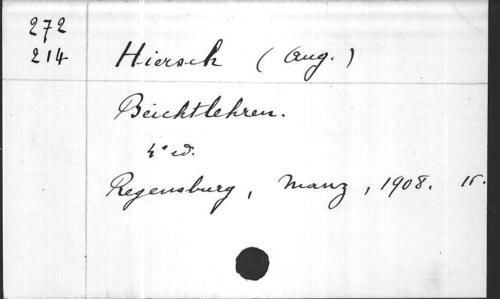 272
214
Hiersch (Aug.)
Beichtlehren.
4° ed.
Regensburg, Manz, 1908.